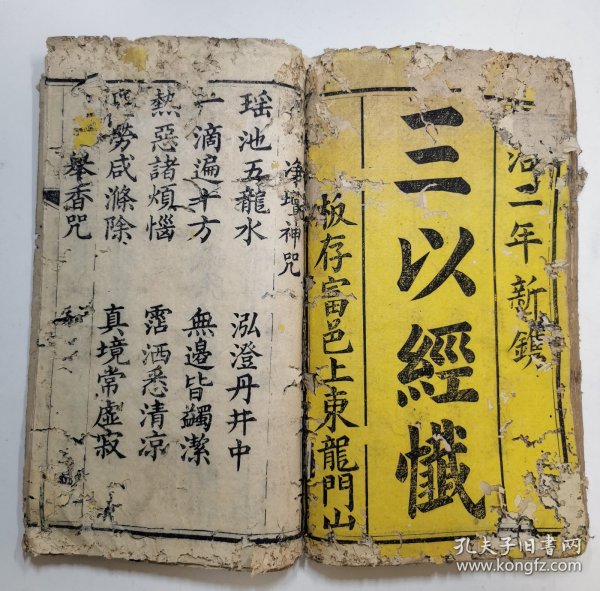 治二年新鐫
三以經懺
板存富邑上東龍門山
淨壇神咒
瑶池五龍水 泓澄丹井中
一滴遍十方 無邊皆蠲潔
熱惡諸煩惱 霑洒悉清凉
勞咸滌除 真境常虛寂
舉香咒
孔夫子旧书网
www.kongfz.com